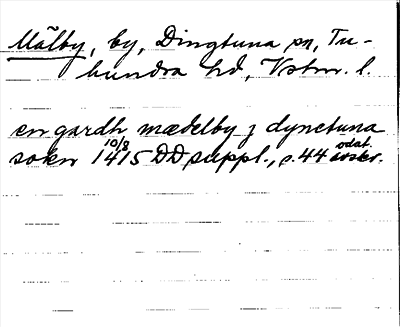 Mälby, by, Dingtuna sn, Tu-
hundra hd, Vstm. l.
en gardh mædelby z dynctuna
sokn 10/8 1415 DD suppl., s. 44 odat.